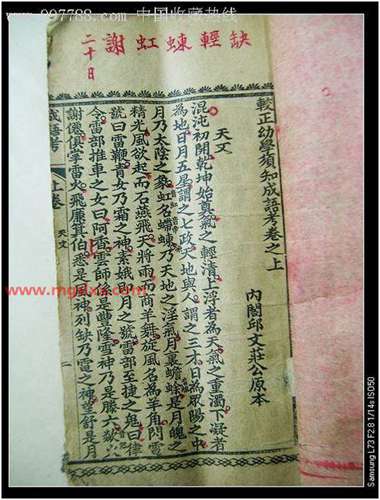 www.997788.com 中国收藏热线
缺輕蝀虹謝
二十日
較正幼學須知成語考卷之上
內閣邱文莊公原本
天文
混沌初開乾坤始奠氣之輕清上浮者為天氣之重濁下凝者
為地日月五星謂之七政天地與人謂之三才日為眾陽之
月乃太陰之象虹名螮蝀乃天地之淫氣月裏蟾蜍是月魄之
精光風欲起而石燕飛天將雨而商羊舞旋風名為羊角閃電
號曰雷鞭青女乃霜之神素娥即月之號雷部至捷之鬼曰律
令雷部推車之女曰阿香雲師係是豐隆雪神乃是滕六欻火
謝僊俱掌雷火飛廉箕伯悉是風神列缺乃電之神望舒是月
成語考 上卷 天文 一
Samsung L73 F2.8 1/14s ISO50